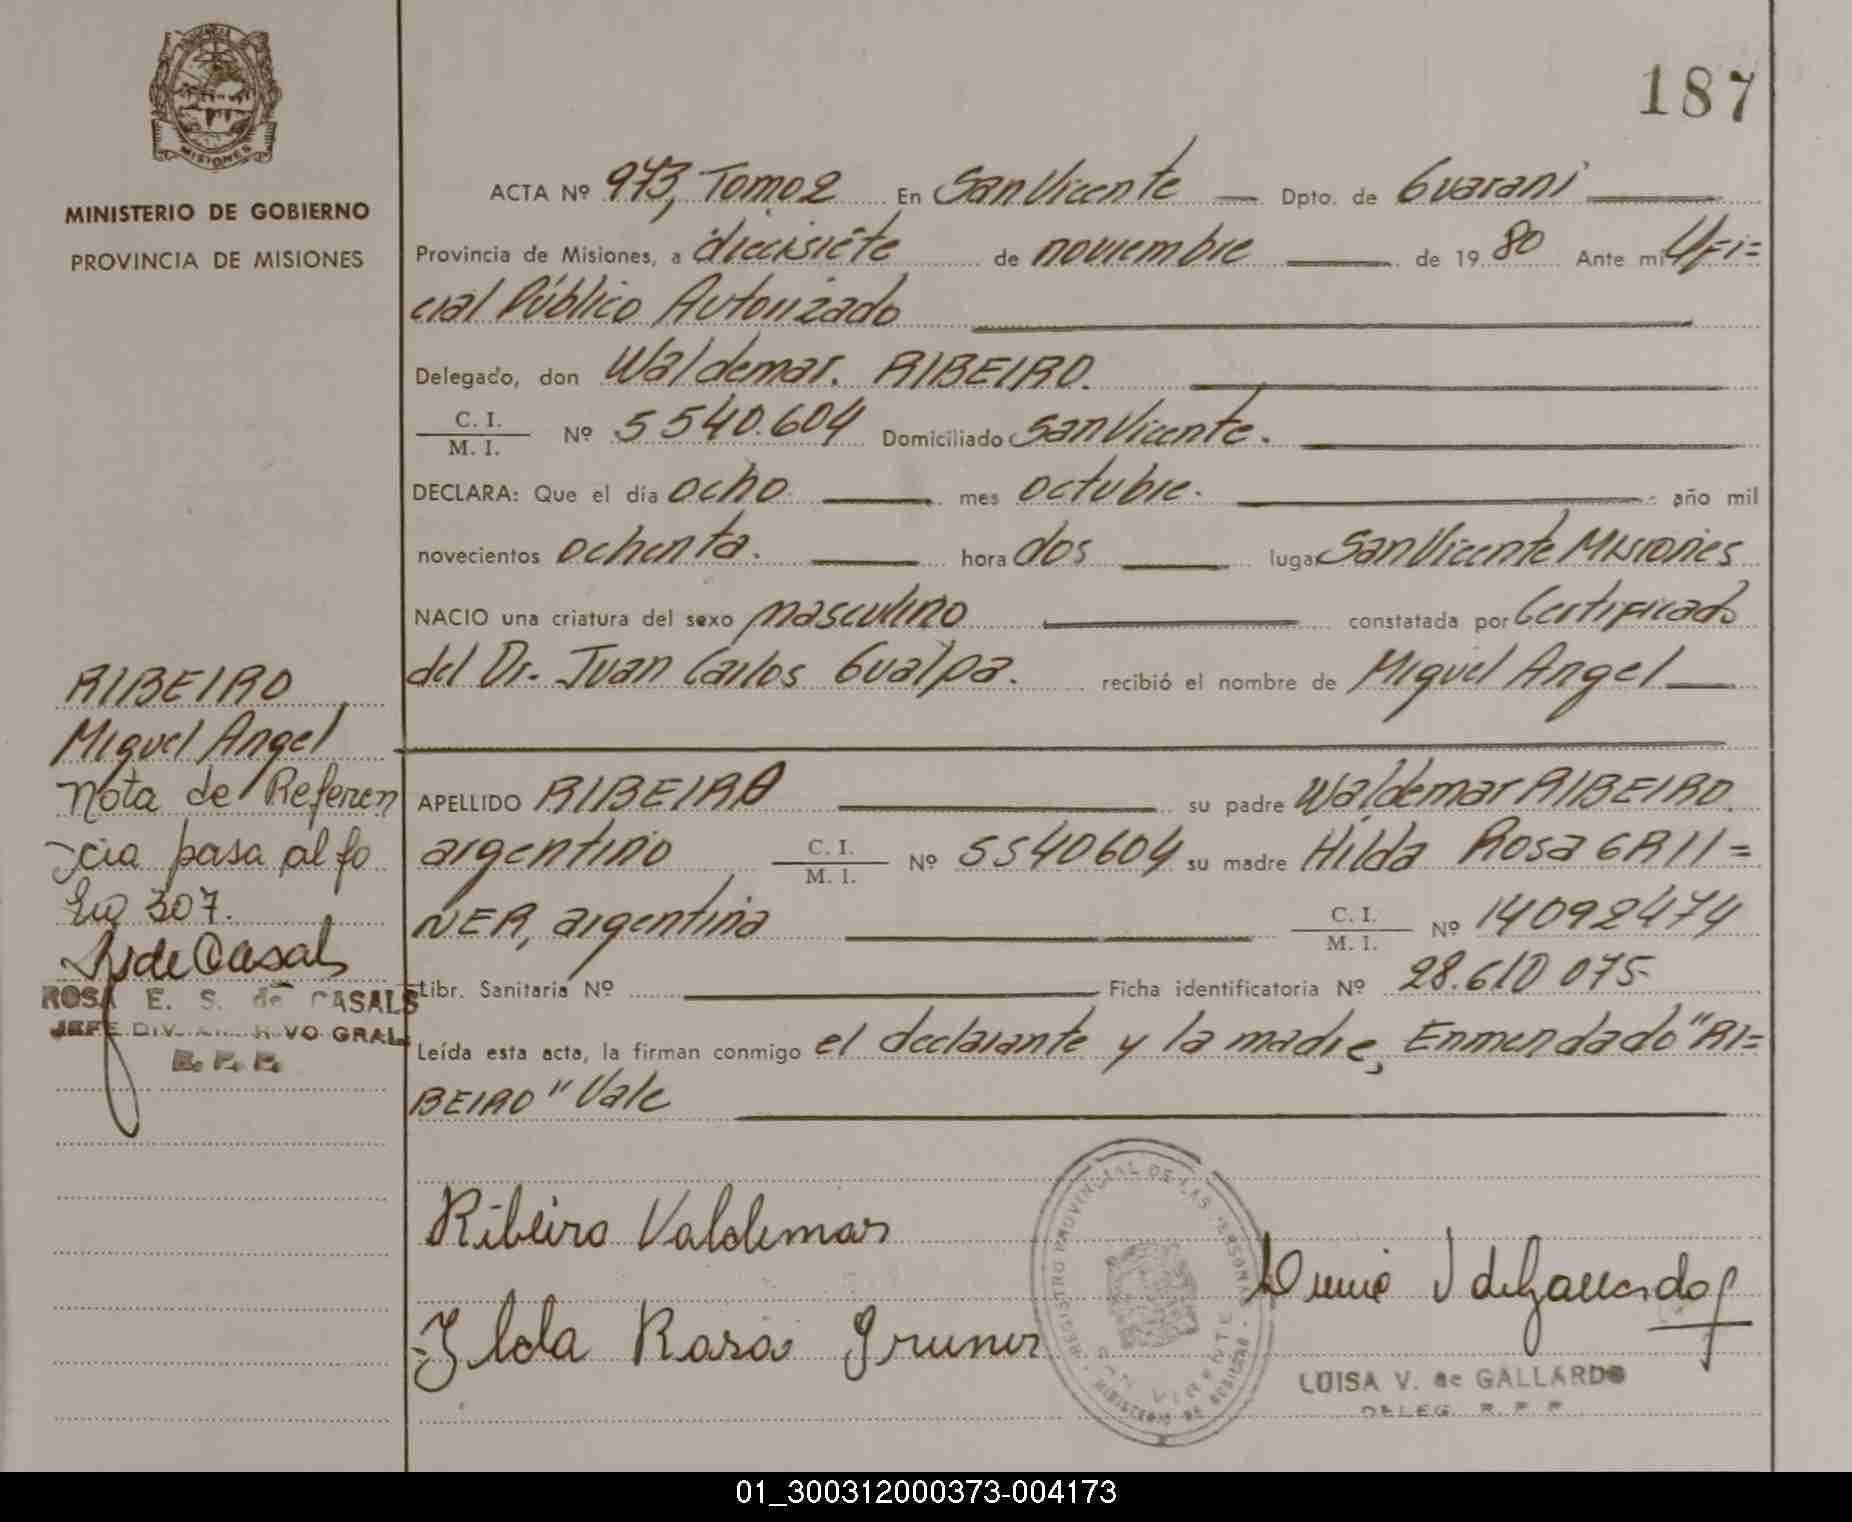 187
MISIONES
MINISTERIO DE GOBIERNO
PROVINCIA DE MISIONES
ACTA Nº 973, Tomo 2 En San Vicente Dpto. de Guaraní
Provincia de Misiones, a diecisiete de noviembre de 19 80 Ante mi Ofi=
cial Público Autorizado
Delegado, don Waldemar. RIBEIRO.
C. I.
M. I. Nº 5540.604 Domiciliado San Vicente.
DECLARA: Que el día ocho mes octubre. año mil
novecientos ochenta. hora dos lugar San Vicente Misiones
NACIO una criatura del sexo masculino constatada por Certificado
del Dr. Juan Carlos Gualpa. recibió el nombre de Miguel Angel
APELLIDO RIBEIRO su padre Waldemar RIBEIRO.
argentino C. I. M. I. Nº 5540604 su madre Hilda Rosa GRII=
NER, argentina C. I. M. I. Nº 14092474
Libr. Sanitaria Nº Ficha identificatoria Nº 28.610 075
Leída esta acta, la firman conmigo el declarante y la madre, Enmendado "RI=
BEIRO" Vale
RIBEIRO
Miguel Angel
nota de Referen
cia pasa al fo
lio 307.
de Casals
ROSA E. S. de CASALS
JEFE DIV. GRAL.
R. P. P.
Ribeiro Valdemar
Ilda Rosa Gruner
REGISTRO PROVINCIAL DE LAS PERSONAS
SAN VICENTE
MINISTERIO DE GOBIERNO
V de Gallardo
LUISA V. de GALLARDO
DELEG. R. P. P.
01_300312000373-004173